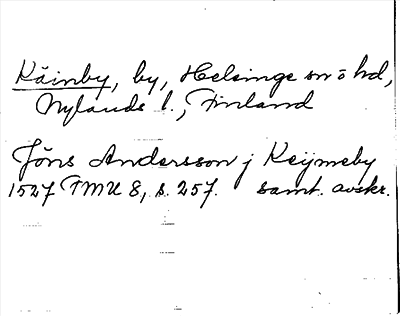 Käinby, by, Helsinge sn o hd,
Nylands l., Finland
Jöns Andersson j Keijmeby
1527 TMU 8, s. 257. samt. avskr.